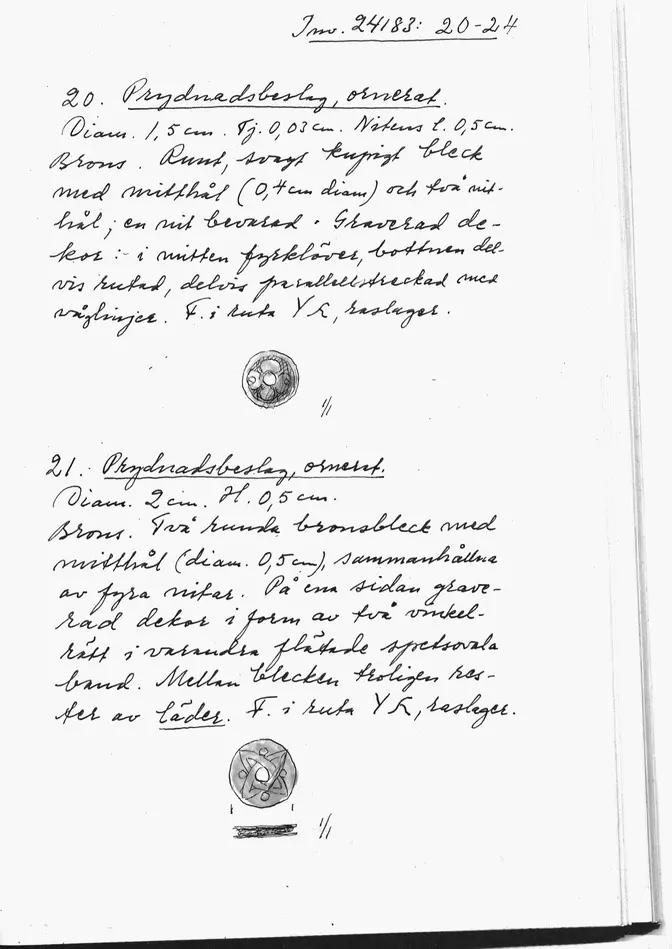 Inv. 24183: 20-24
20. Prydnadsbeslag, ornerat.
Diam. 1,5 cm. Tj. 0,03 cm. Nitens l. 0,5 cm.
Brons. Runt, svagt kupigt bleck
med mitthål (0,4 cm diam) och två nit-
hål; en nit bevarad. Graverad de-
kor:- i mitten fyrklöver, bottnen del-
vis rutad, delvis parallellstreckad med
våglinjer. F. i ruta Y, raslager.
1/1
21. Prydnadsbeslag, ornerat.
Diam. 2 cm. H. 0,5 cm.
Brons. Två runda bronsbleck med
mitthål (diam. 0,5 cm), sammanhållna
av fyra nitar. På ena sidan grave-
rad dekor i form av två vinkel-
rätt i varandra flätade spetsovala
band. Mellan blecken troligen res-
ter av läder. F. i ruta Y, raslager.
1/1